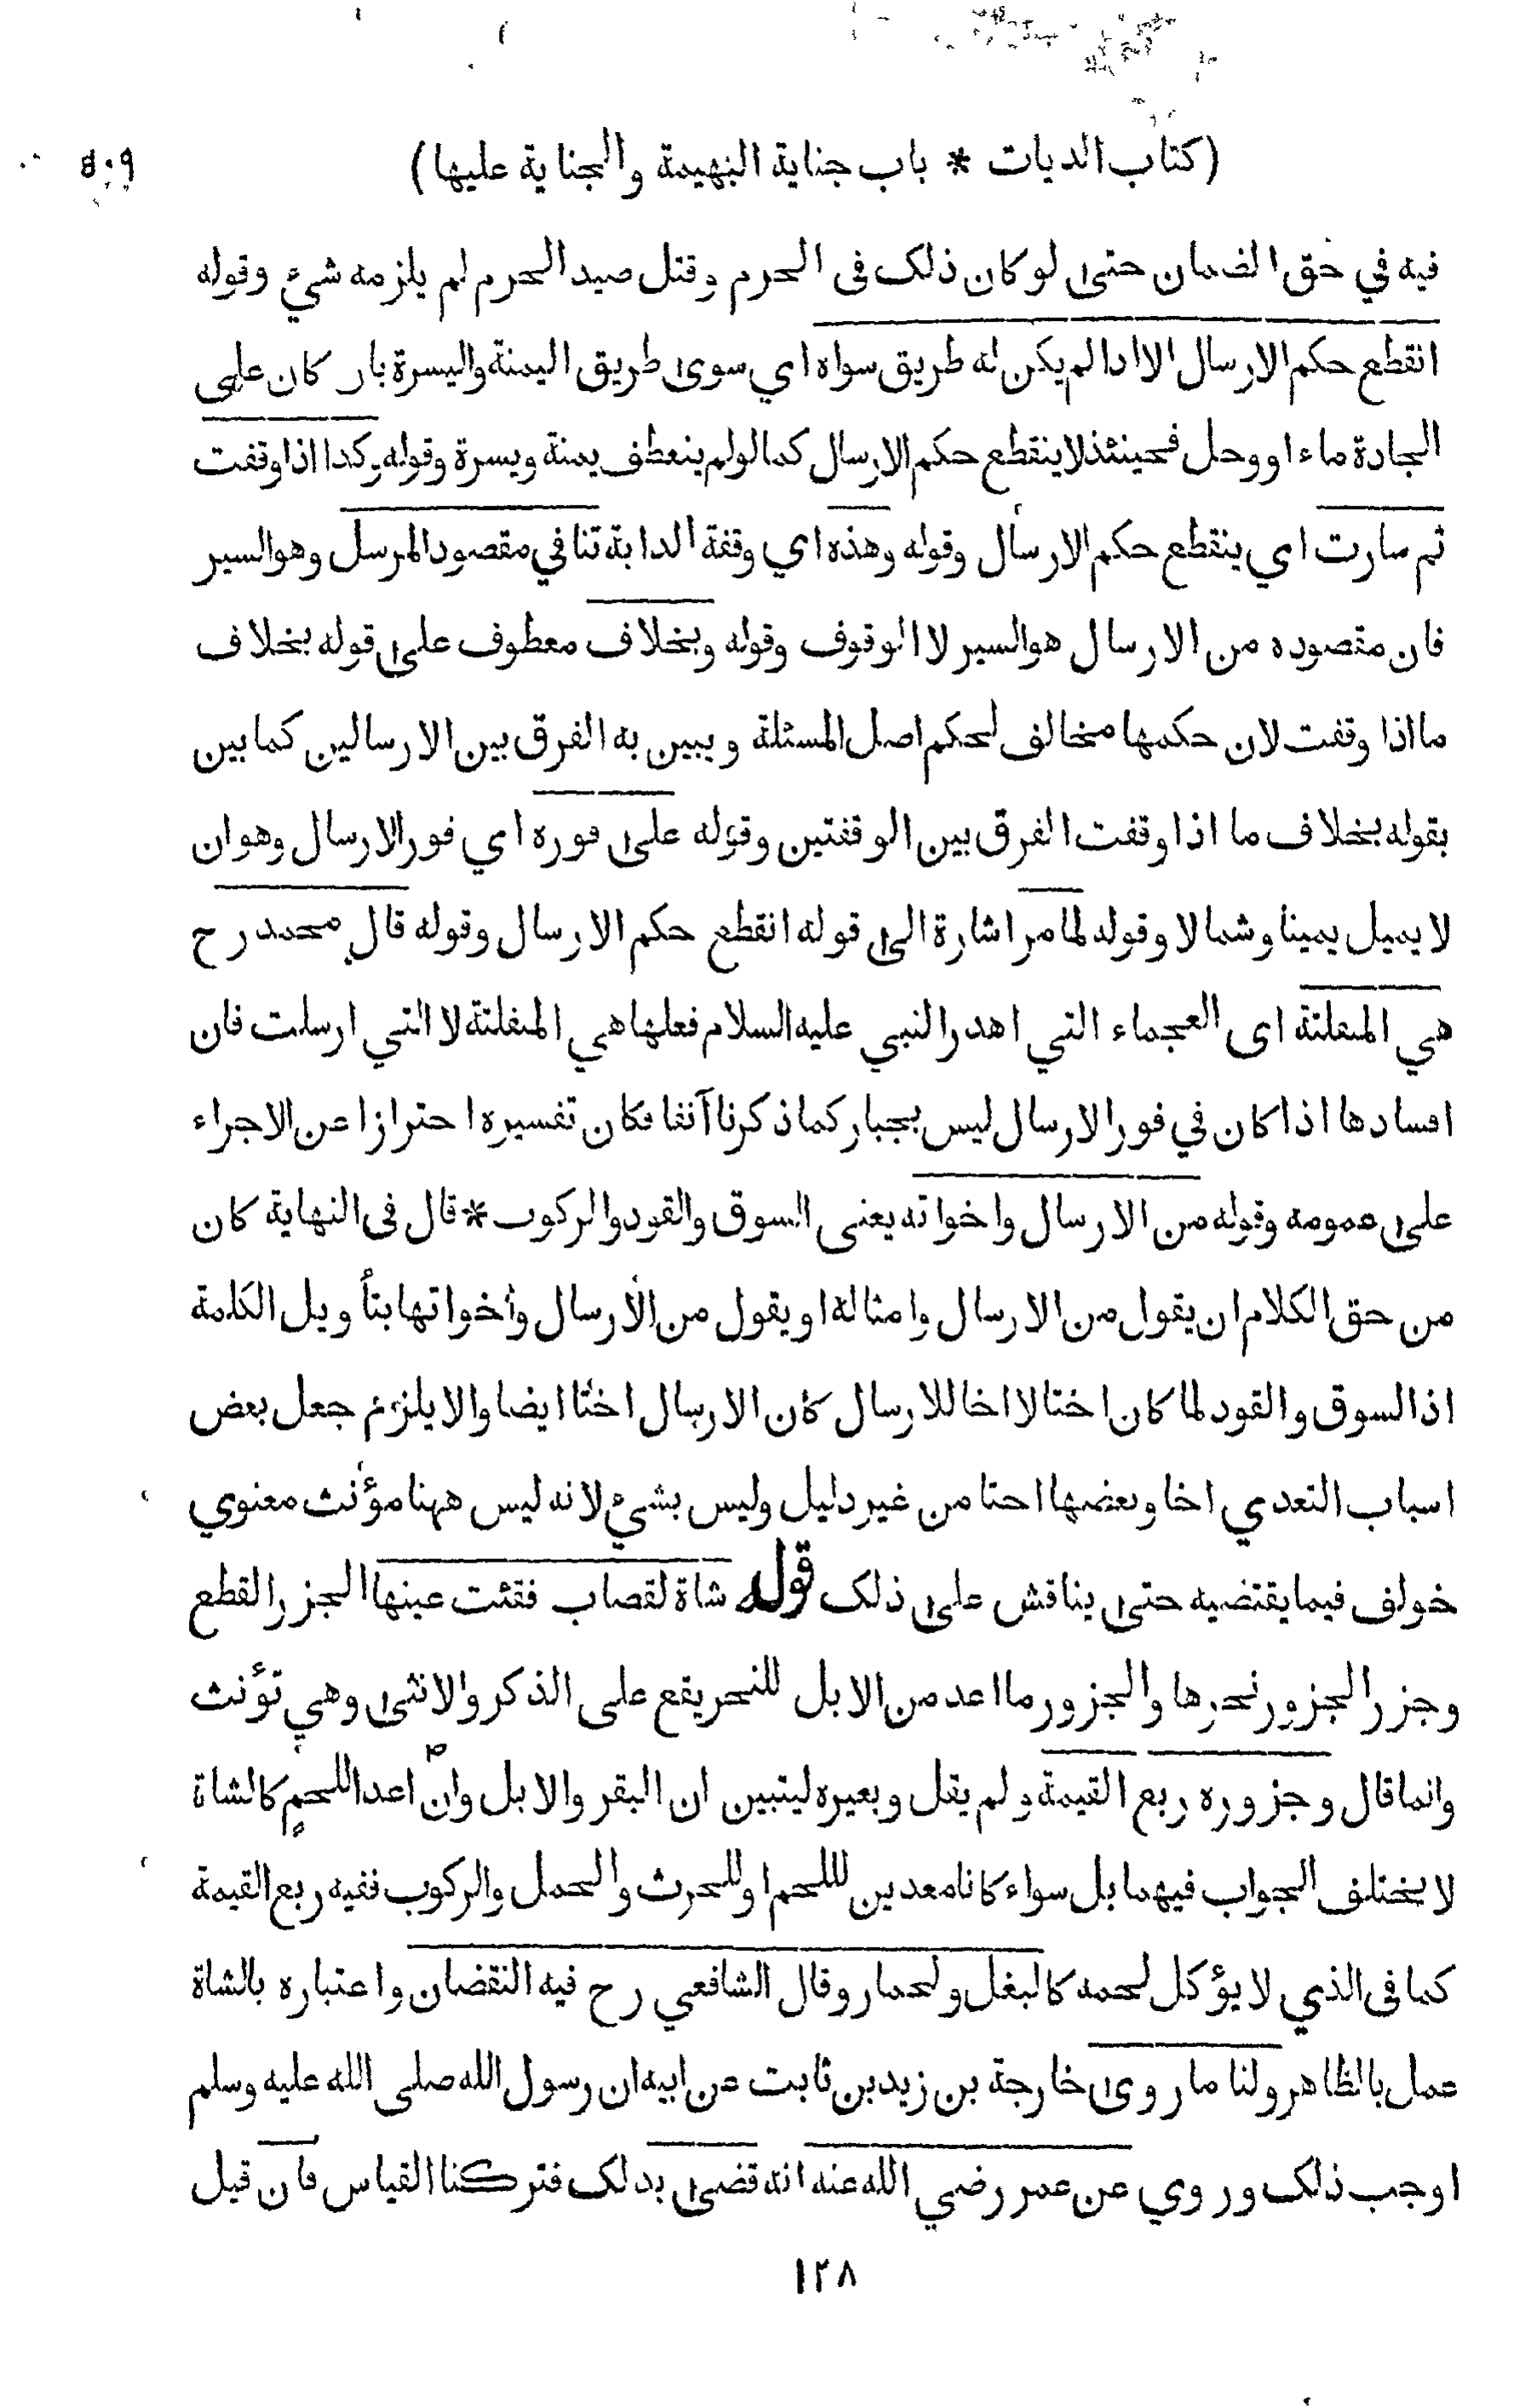 (كتاب الديات * باب جناية البهيمة والجناية عليها)
٥٠٩
فيه في حق الضمان حتى لو كان ذلك فى الحرم وقتل صيد الحرم لم يلزمه شيء وقوله
انقطع حكم الارسال الا اذا لم يكن له طريق سواه اي سوى طريق اليمنة واليسرة بان كان على
الجادة ماء او وحل فحينئذ لا ينقطع حكم الارسال كما لو لم ينعطف يمنة ويسرة وقوله وكذا اذا وقفت
ثم سارت اي ينقطع حكم الارسال وقوله وهذه اي وقفة الدابة تنافي مقصود المرسل وهو السير
فان مقصوده من الارسال هو السير لا الوقوف وقوله وبخلاف معطوف على قوله بخلاف
ما اذا وقفت لان حكمها مخالف لحكم اصل المسئلة ويبين به الفرق بين الارسالين كما بين
بقوله بخلاف ما اذا وقفت الفرق بين الوقفتين وقوله على فوره اي فور الارسال وهو ان
لا يميل يمينا وشمالا وقوله لما مر اشارة الى قوله انقطع حكم الارسال وقوله قال محمد رح
هي المنفلتة اى العجماء التي اهدر النبي عليه السلام فعلها هي المنفلتة لا التي ارسلت فان
افسادها اذا كان في فور الارسال ليس بجبار كما ذكرنا آنفا فكان تفسيره احترازا عن الاجراء
على عمومه وقوله من الارسال واخواته يعنى السوق والقود والركوب * قال فى النهاية كان
من حق الكلام ان يقول من الارسال وامثاله او يقول من الارسال وأخواتها بتأويل الكلمة
اذ السوق والقود لما كان اختا لا اخا للارسال كان الارسال اختا ايضا والا يلزم جعل بعض
اسباب التعدي اخا وبعضها اختا من غير دليل وليس بشيء لانه ليس ههنا مؤنث معنوي
خولف فيما يقتضيه حتى يناقش على ذلك قوله شاة لقصاب فقئت عينها الجزر القطع
وجزر الجزور نحرها والجزور ما اعد من الابل للنحر يقع على الذكر والانثى وهي تؤنث
وانما قال وجزوره ربع القيمة ولم يقل وبعيره ليتبين ان البقر والابل وان اعد اللحم كالشاة
لا يختلف الجواب فيهما بل سواء كانا معدين لللحم او للحرث والحمل والركوب ففيه ربع القيمة
كما فى الذي لا يؤكل لحمه كالبغل ولحمار وقال الشافعي رح فيه النقضان واعتباره بالشاة
عمل بالظاهر ولنا ما روى خارجة بن زيد بن ثابت عن ابيه ان رسول الله صلى الله عليه وسلم
اوجب ذلك وروي عن عمر رضي الله عنه انه قضى بذلك فتركنا القياس فان قيل
١٢٨